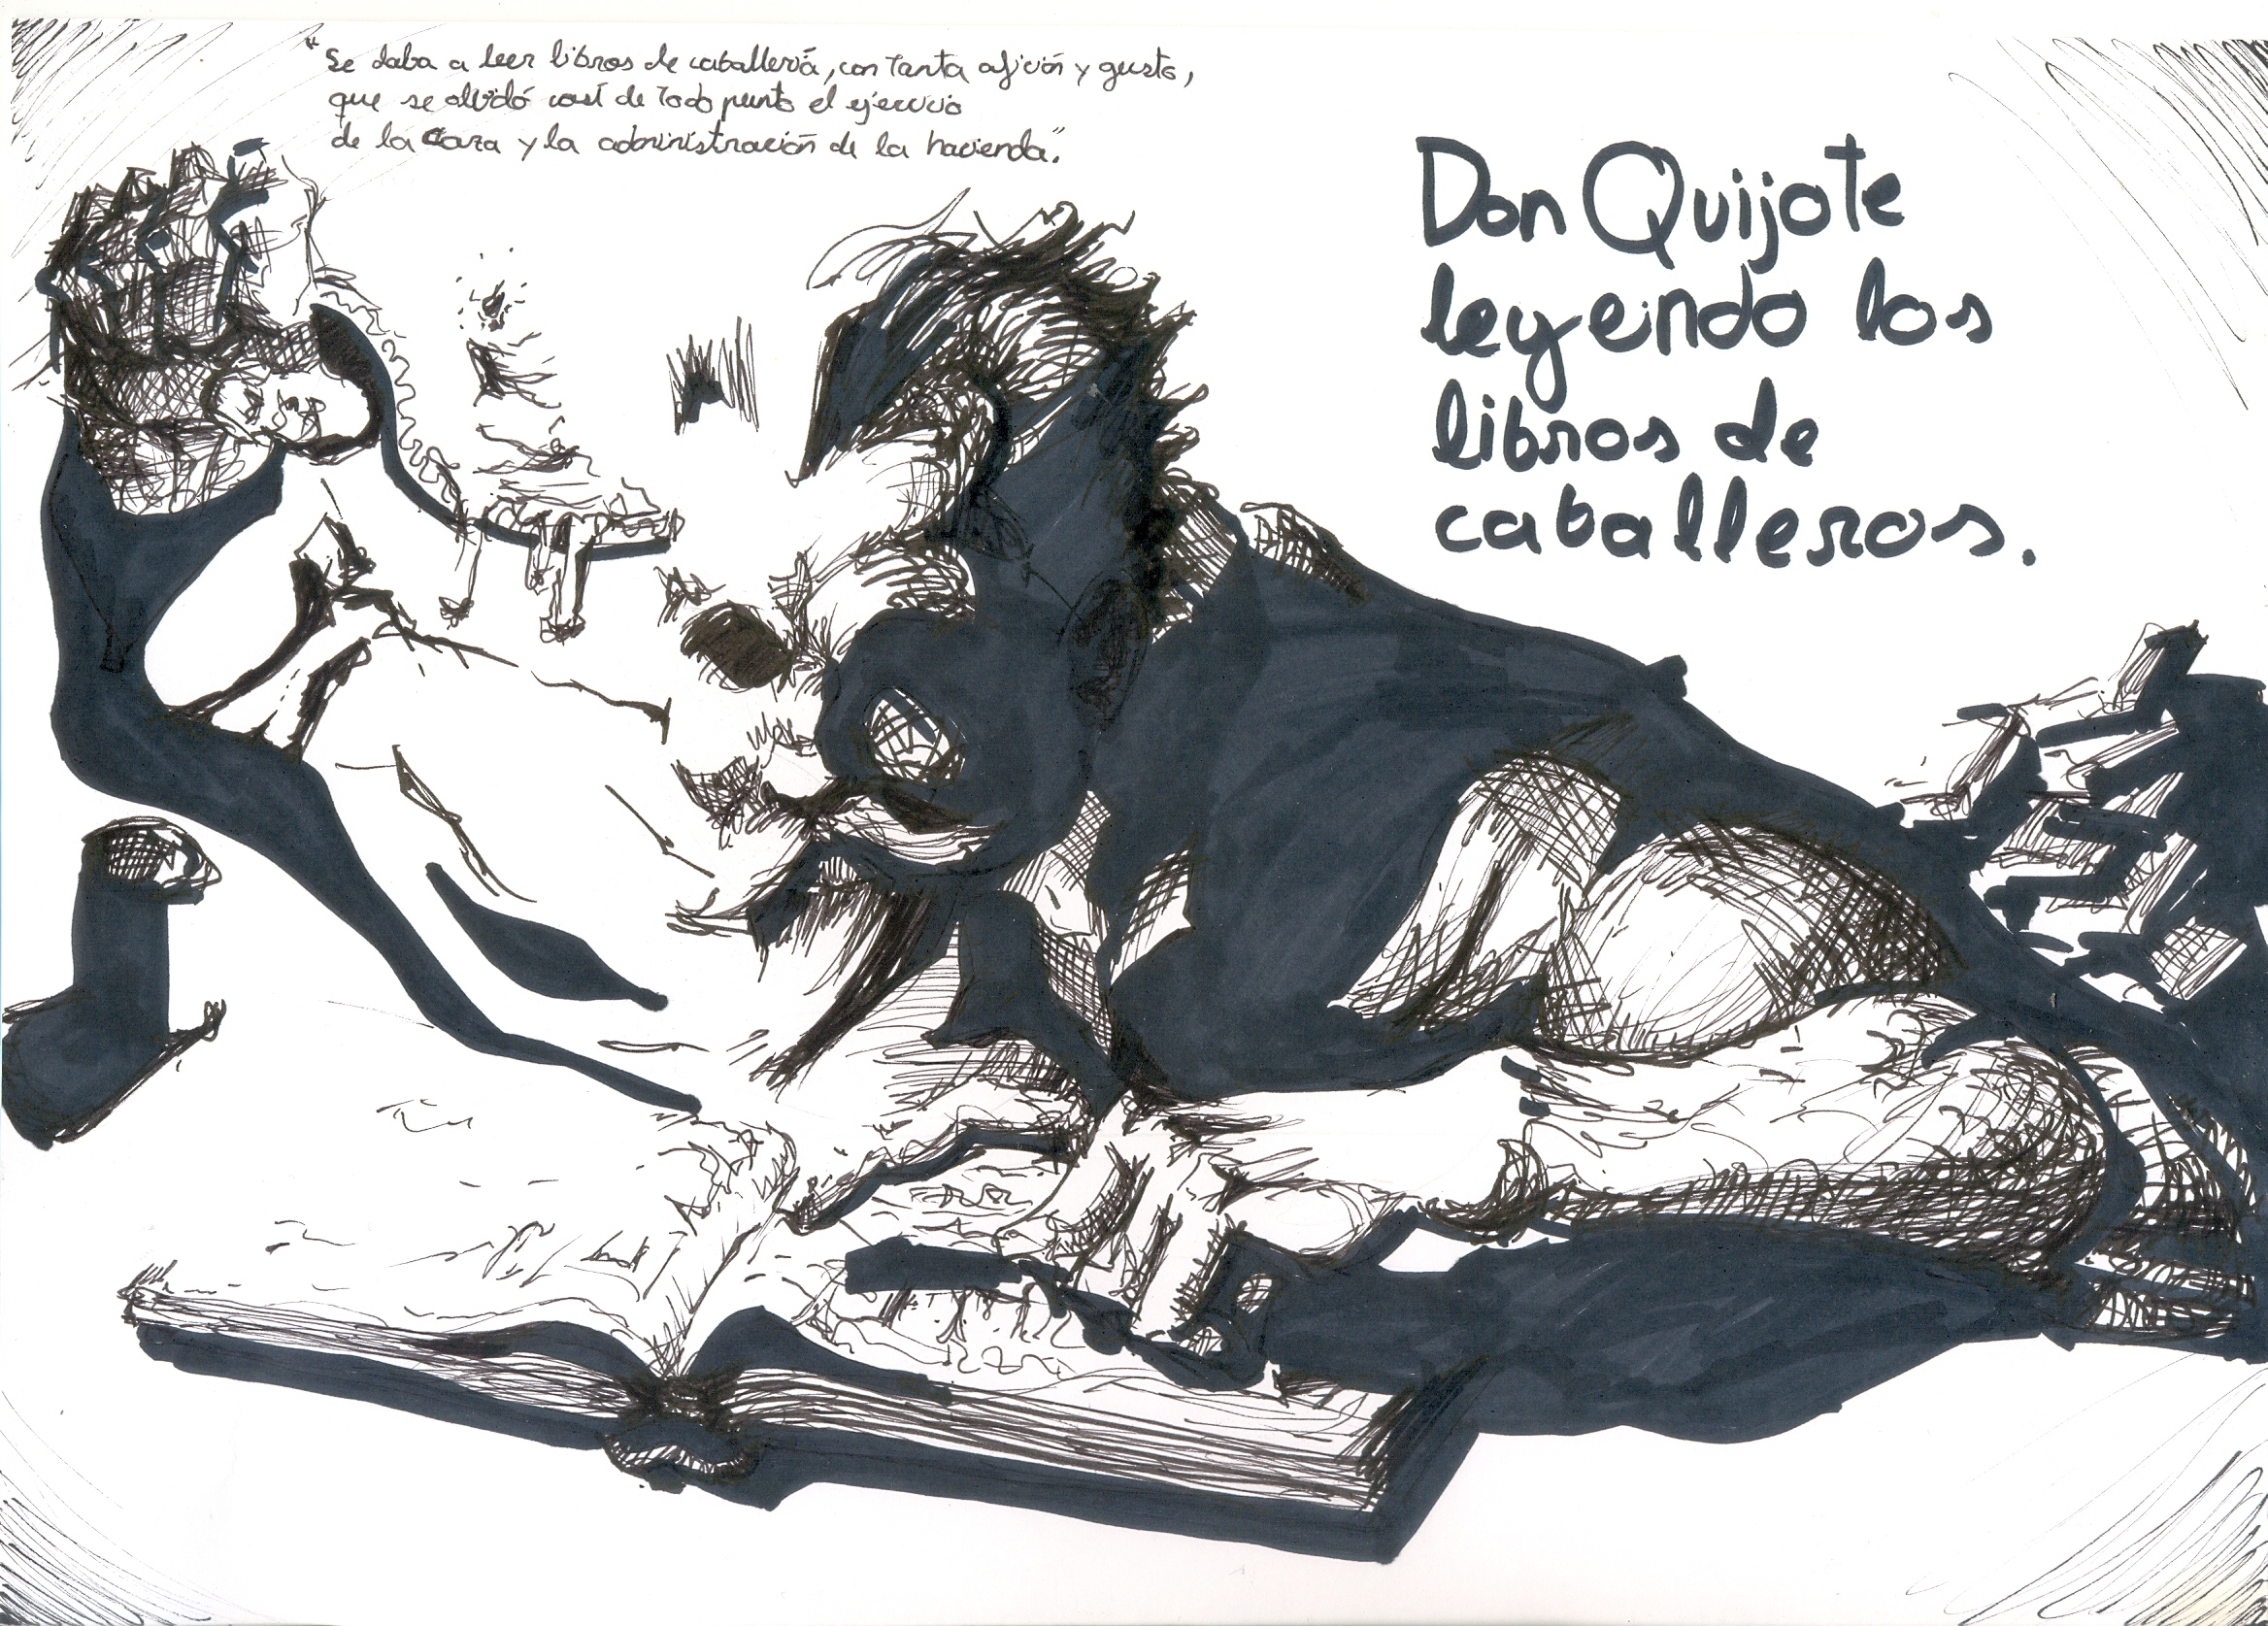 "Se daba a leer libros de caballería, con tanta afición y gusto,
que se olvidó casi de todo punto el ejercicio
de la caza y la administración de la hacienda."
Don Quijote
leyendo los
libros de
caballeros.